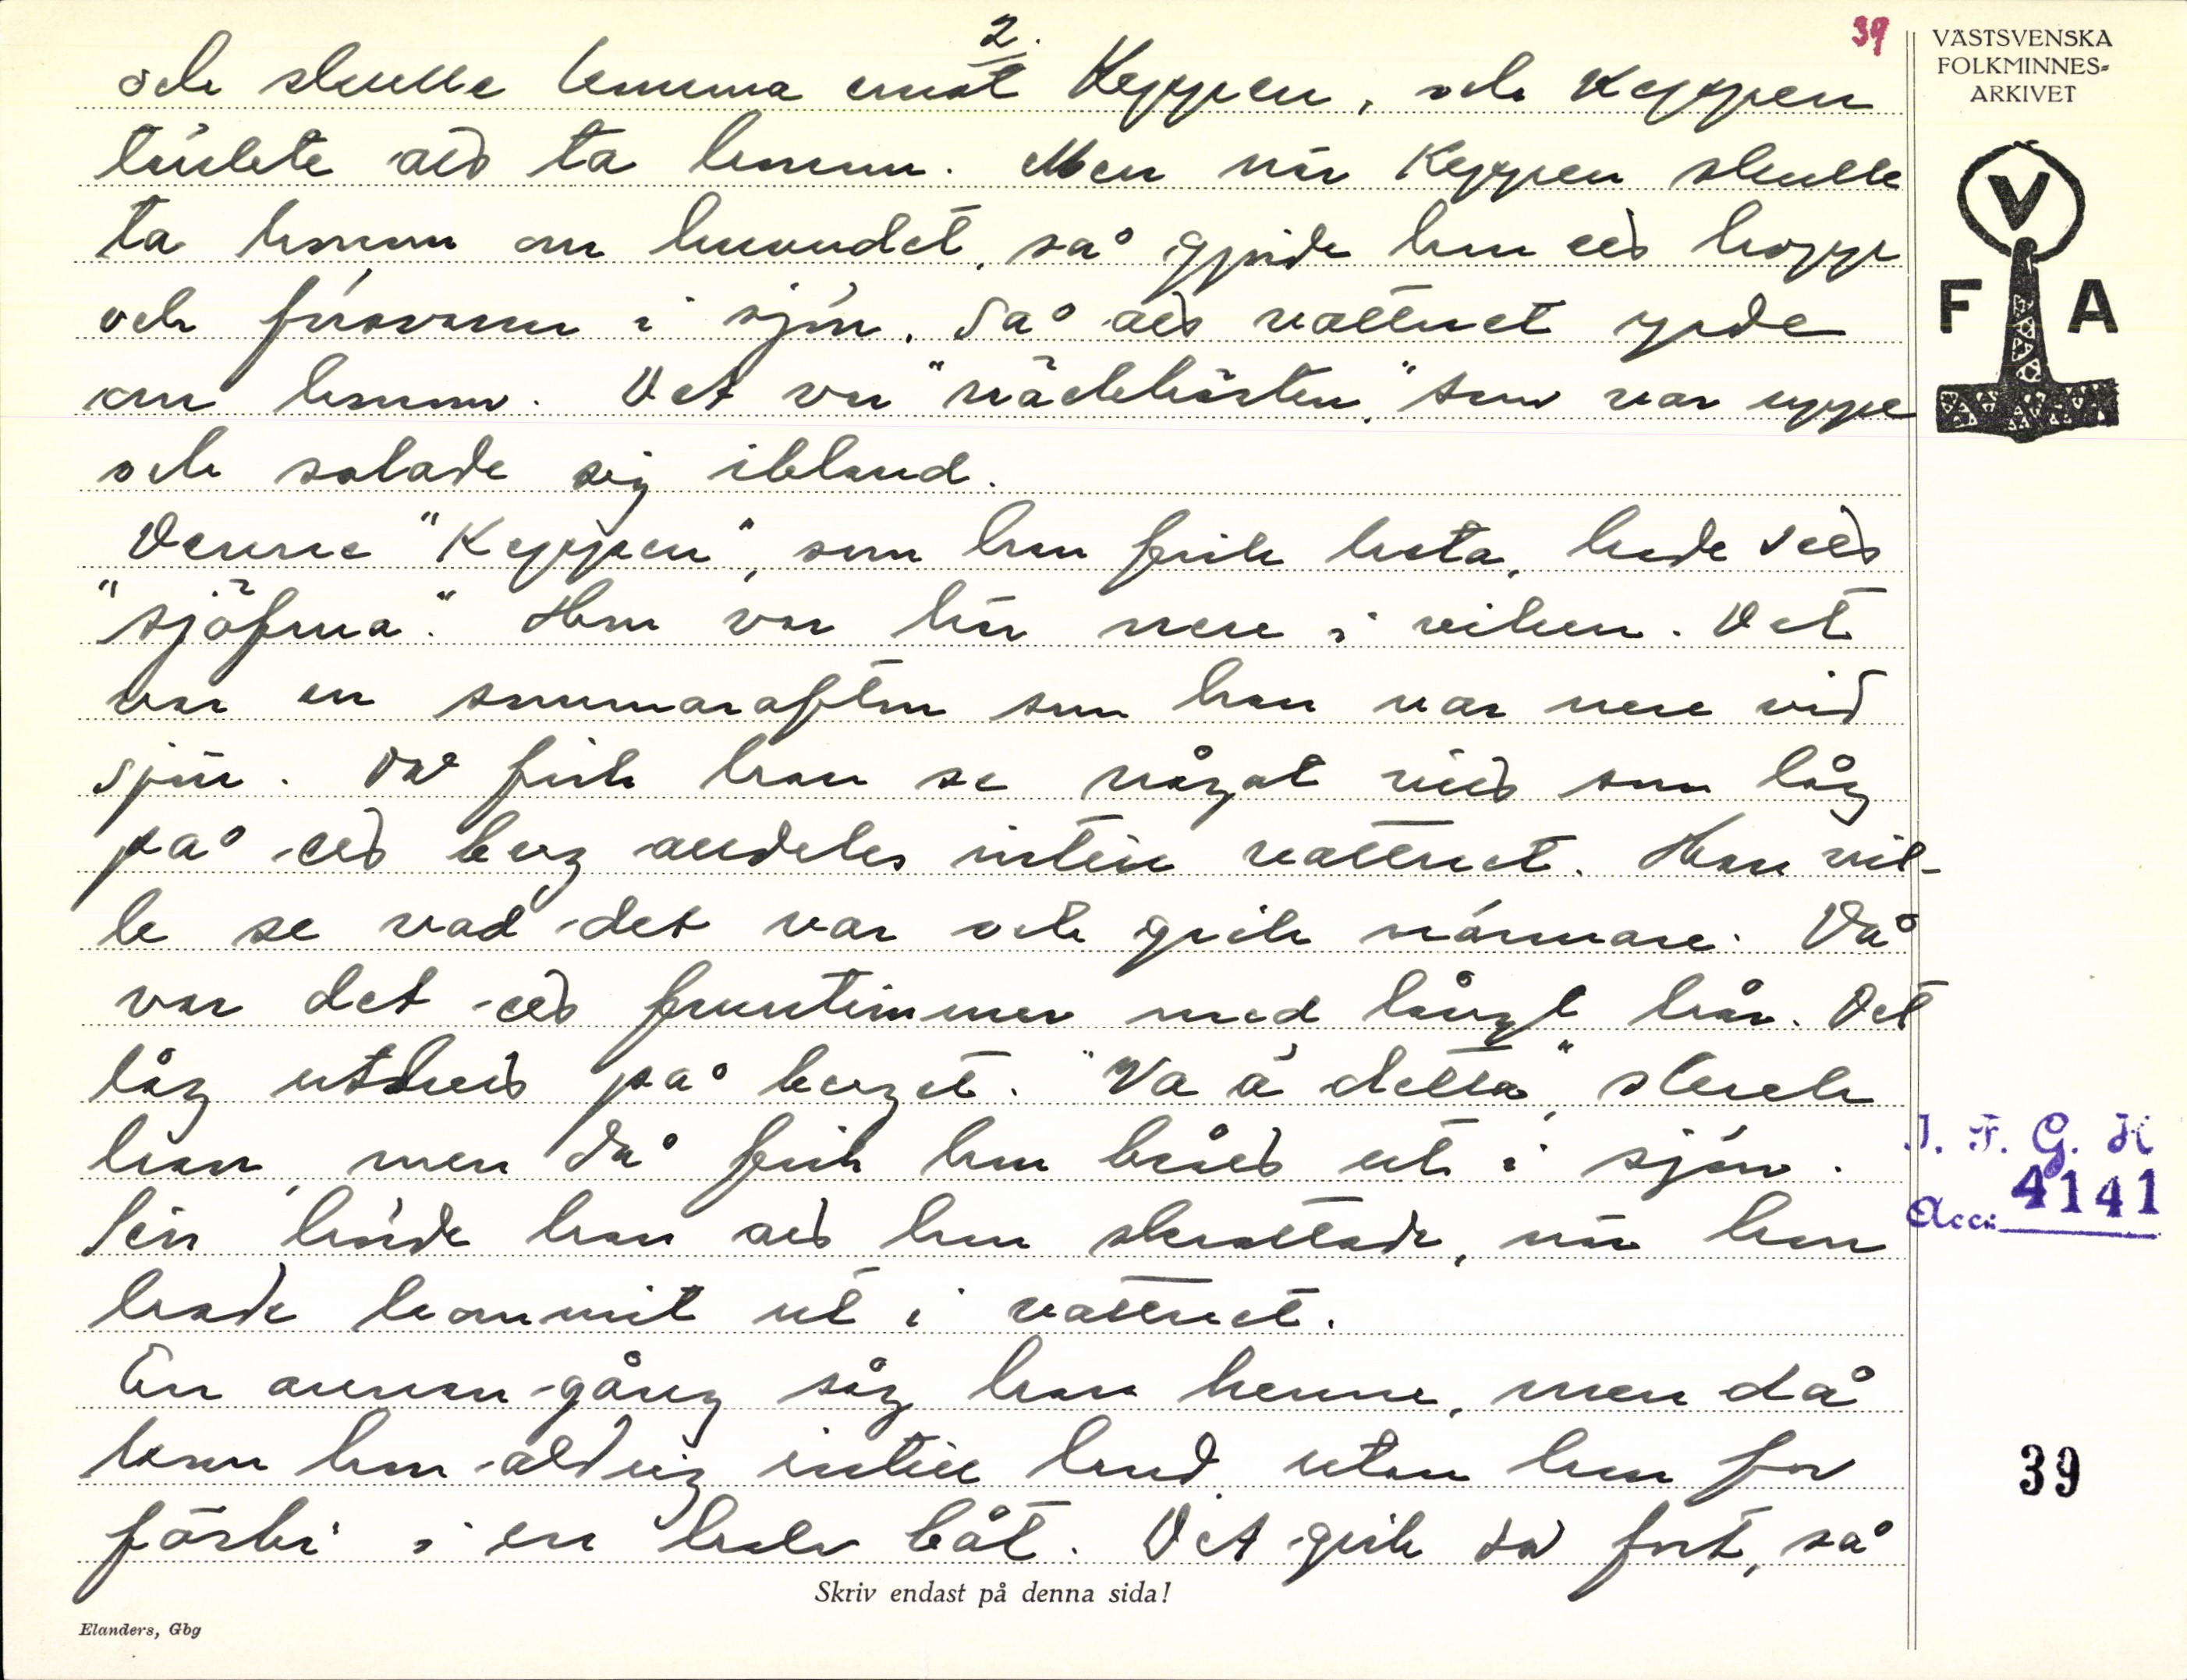 2.
39
och skulle komma emot Keppen, och Keppen
tänkte att ta honom. Men när Keppen skulle
ta honom om huvudet, så gjorde han ett hopp
och försvann i sjön. Så att vattnet yrde
om honom. Det var "näckhästen," som var uppe
och solade sig ibland.
Denne "Keppen", som han fick heta, hade sett
"sjöfrua". Hon var här nere i viken. Det
var en sommarafton som han var nere vid
sjön. Då fick han se något vitt som låg
på ett berg alldeles intill vattnet. Han vil-
le se vad det var och gick närmare. Då
var det ett fruntimmer med långt hår. Det
låg utbrett på berget. "Va ä detta", skrek
han, men då fick hon brått ut i sjön.
Sen hörde han att hon skrattade, när hon
hade kommit ut i vattnet.
En annan gång såg han henne, men då
kom hon aldrig intill land utan hon for
förbi i en halv båt. Det gick så fort, så
Skriv endast på denna sida!
Elanders, Gbg
VÄSTSVENSKA
FOLKMINNES-
ARKIVET
V
F A
I. F. G. H
Acc. 4141
39